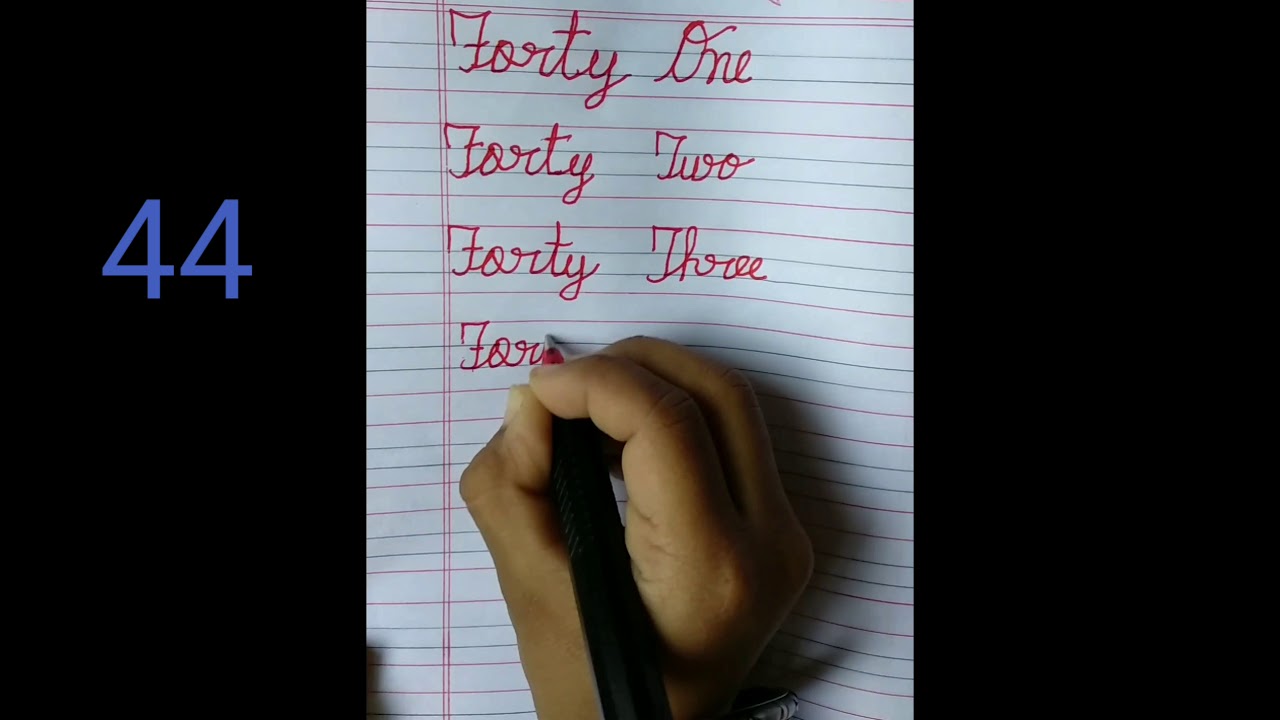 Forty One
Forty Two
44
Forty Three
For